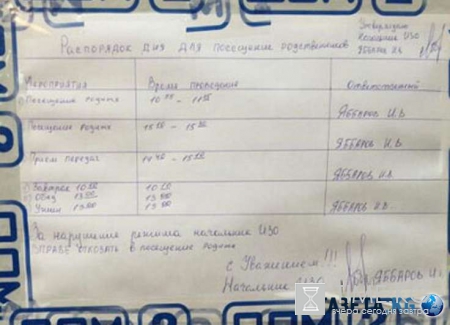 Утверждаю
Начальник ИЗО
Яббаров И.В.
Распорядок дня для посещения родственников
Мероприятия Время проведения Ответственный
Посещение родств. Яббаров И.В.
Посещение родств. 15 00 - 15 30 Яббаров И.В.
Прием передач - 15 00 Яббаров И.В.
1) Завтрак 10.00 10.00
2) Обед 13.00 13.00 Яббаров И.В.
3) Ужин
За нарушения режима начальник ИЗО
ВПРАВЕ отказать в посещение родств.
С Уважением!!!
Начальник ИЗО Яббаров И.
вчера сегодня завтра